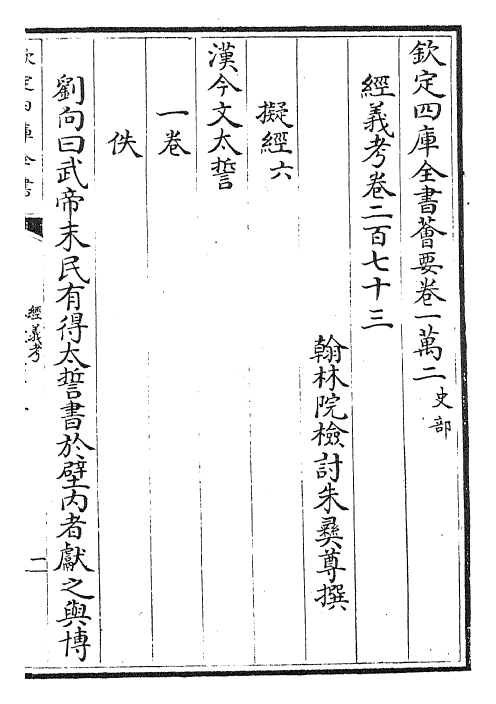 欽定四庫全書薈要卷一萬二史部
經義考卷二百七十三
翰林院檢討朱彝尊撰
擬經六
漢今文太誓
一卷
佚
劉向曰武帝末民有得太誓書於壁内者獻之與博
欽定四庫全書
經義考